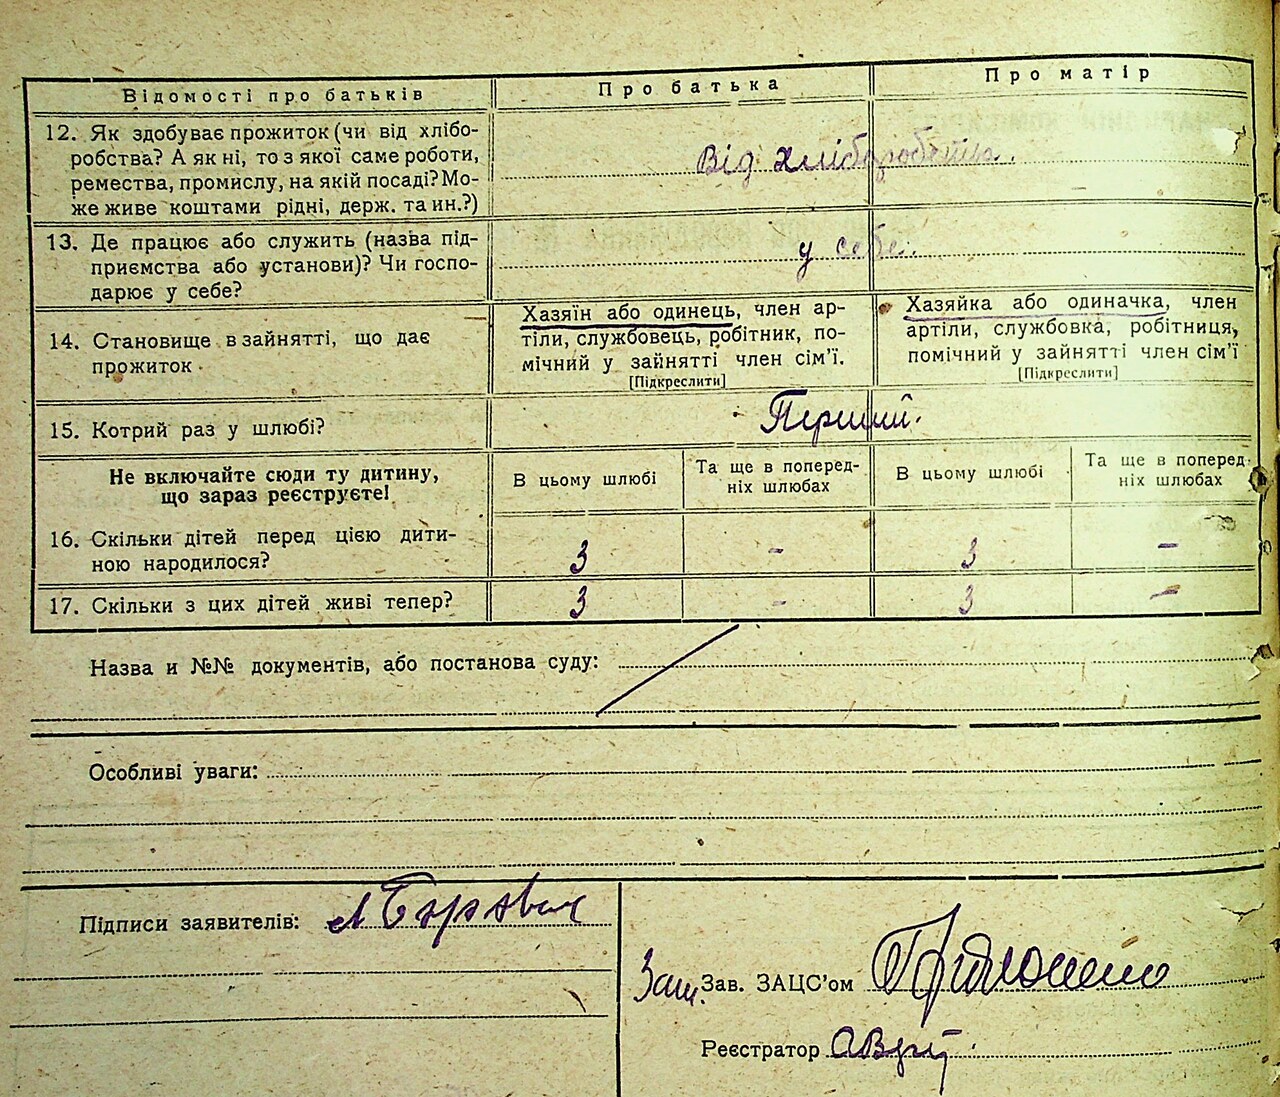 Відомості про батьків
Про батька
Про матір
12. Як здобуває прожиток (чи від хлібо-
робства? А як ні, то з якої саме роботи,
ремества, промислу, на якій посаді? Мо-
же живе коштами рідні, держ. та ин.?)
Від хліборобства.
13. Де працює або служить (назва під-
приємства або установи)? Чи госпо-
дарює у себе?
у себе.
14. Становище в зайнятті, що дає
прожиток
Хазяїн або одинець, член ар-
тіли, службовець, робітник, по-
мічний у зайнятті член сім'ї.
[Підкреслити]
Хазяйка або одиначка, член
артіли, службовка, робітниця,
помічний у зайнятті член сім'ї
[Підкреслити]
15. Котрий раз у шлюбі?
Перший.
Не включайте сюди ту дитину,
що зараз реєструєте!
В цьому шлюбі
Та ще в поперед-
ніх шлюбах
В цьому шлюбі
Та ще в поперед-
ніх шлюбах
16. Скільки дітей перед цією дити-
ною народилося?
3 - 3 -
17. Скільки з цих дітей живі тепер?
3 - 3 -
Назва и №№ документів, або постанова суду:
Особливі уваги:
Підписи заявителів:
Зав. ЗАЦС'ом
Реєстратор